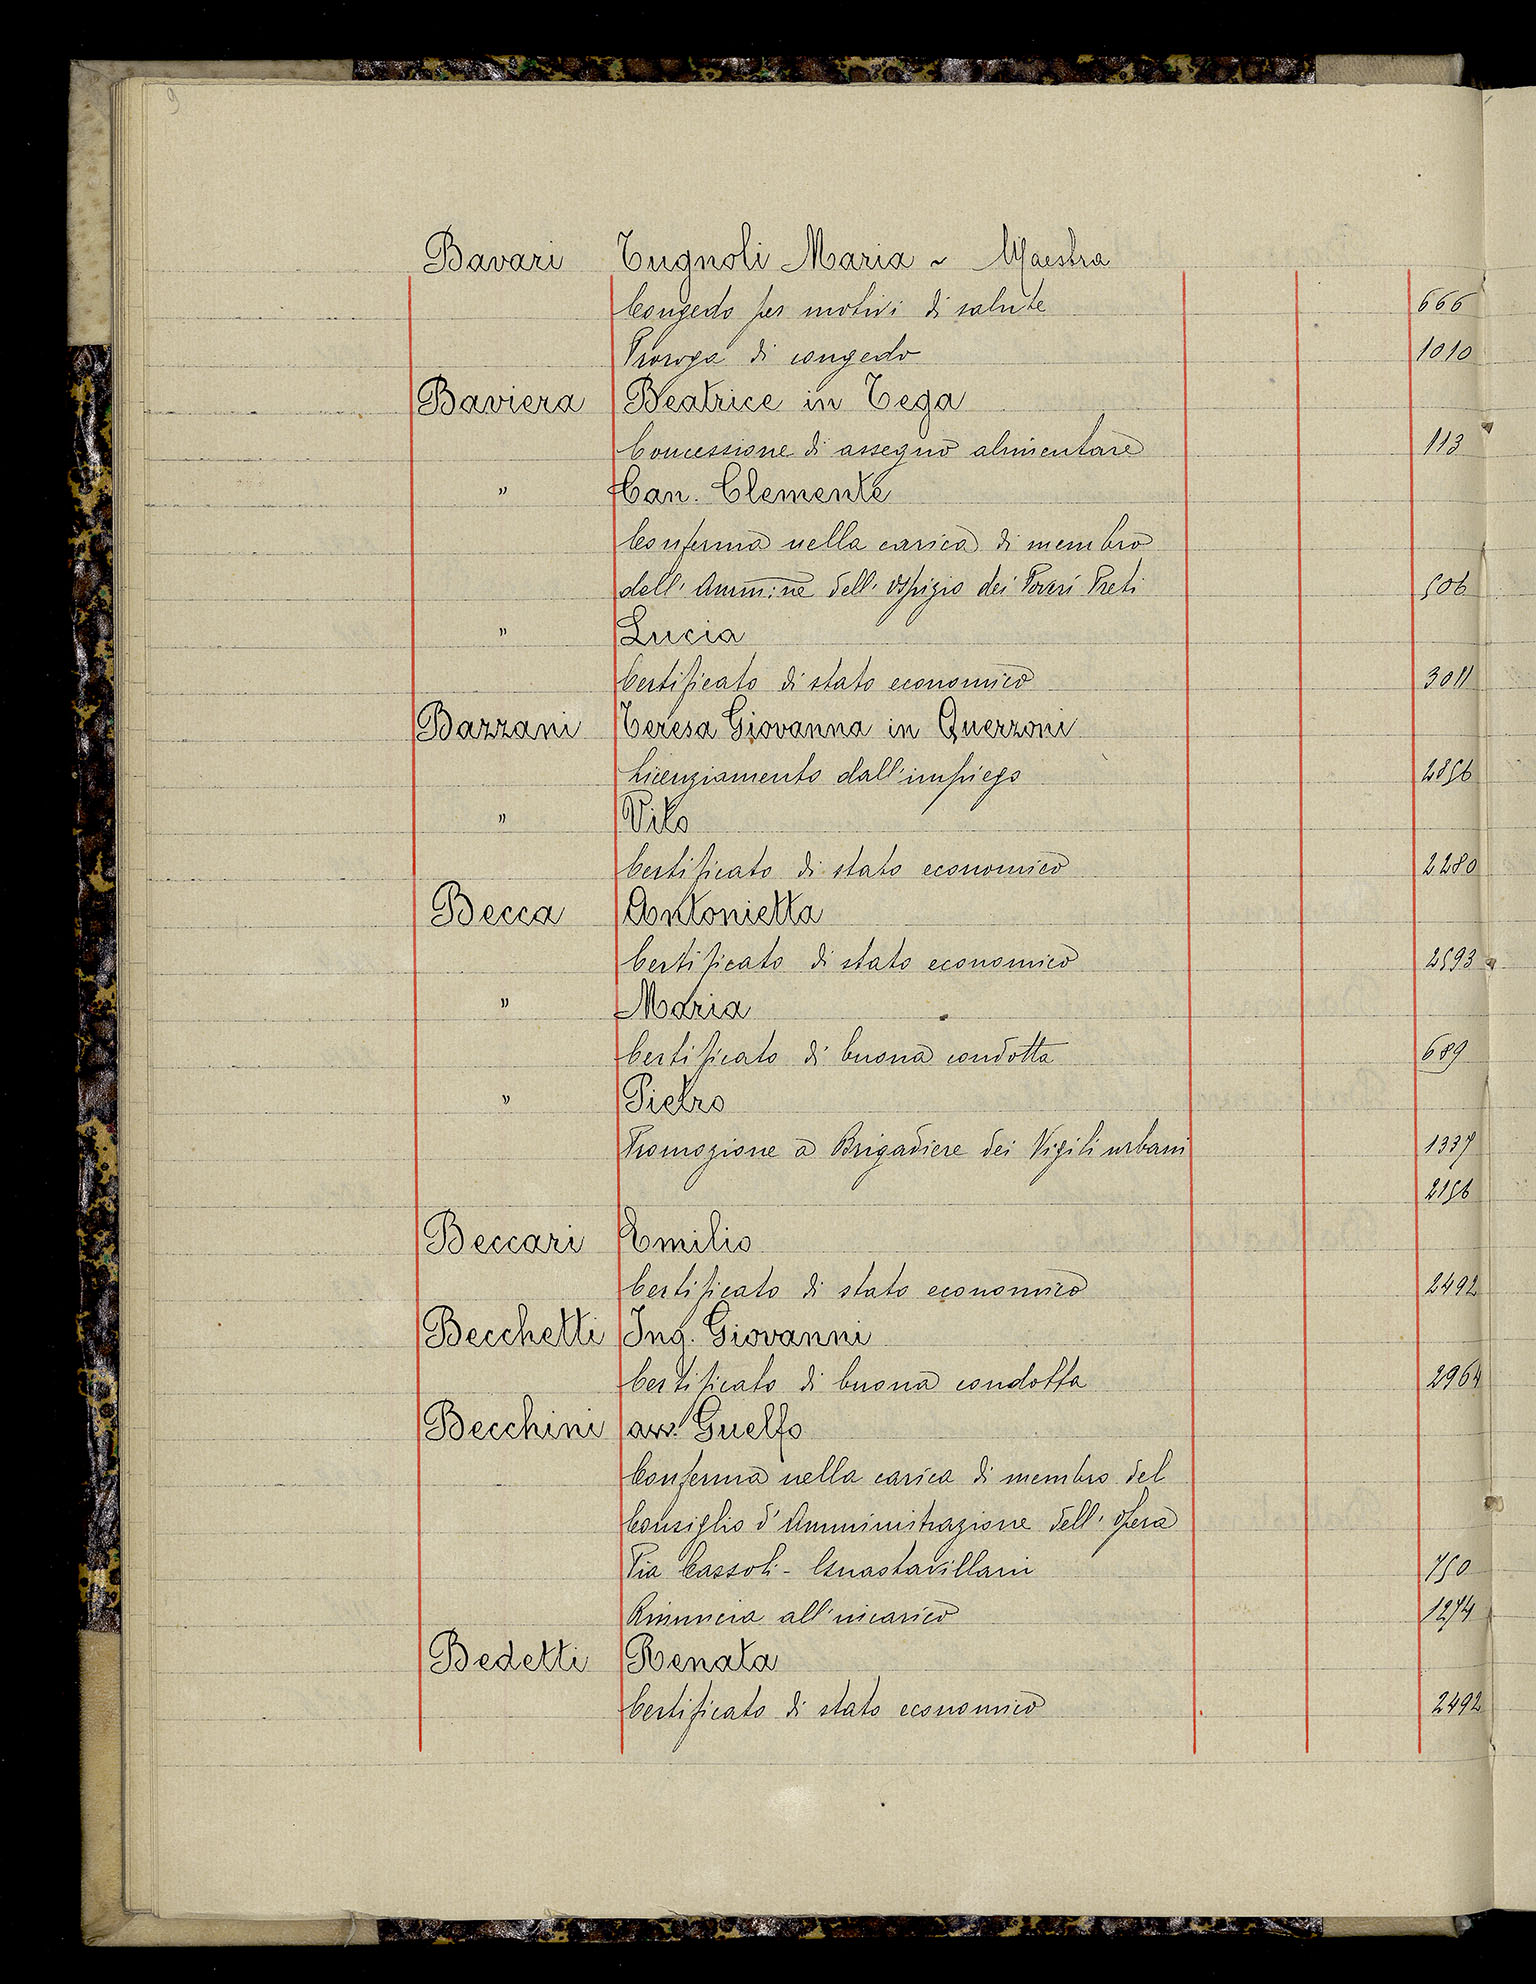 9
Bavari Tugnoli Maria ~ Maestra
Congedo per motivi di salute 666
Proroga di congedo 1010
Baviera Beatrice in Tega
Concessione di assegno alimentare 113
" Can. Clemente
Conferma nella carica di membro
dell'Ammine dell'Ospizio dei Poveri Preti 506
" Lucia
Certificato di stato economico 3011
Bazzani Teresa Giovanna in Querzoni
Licenziamento dall'impiego 2856
" Vito
Certificato di stato economico 2280
Becca Antonietta
Certificato di stato economico 2593
" Maria
Certificato di buona condotta 689
" Pietro
Promozione a Brigadiere dei Vigili urbani 1337
2156
Beccari Emilio
Certificato di stato economico 2492
Becchetti Ing. Giovanni
Certificato di buona condotta 2964
Becchini avv. Guelfo
Conferma nella carica di membro del
Consiglio d'Amministrazione dell'Opera
Pia Cassoli - Guastavillani 750
Rinuncia all'incarico 1274
Bedetti Renata
Certificato di stato economico 2492